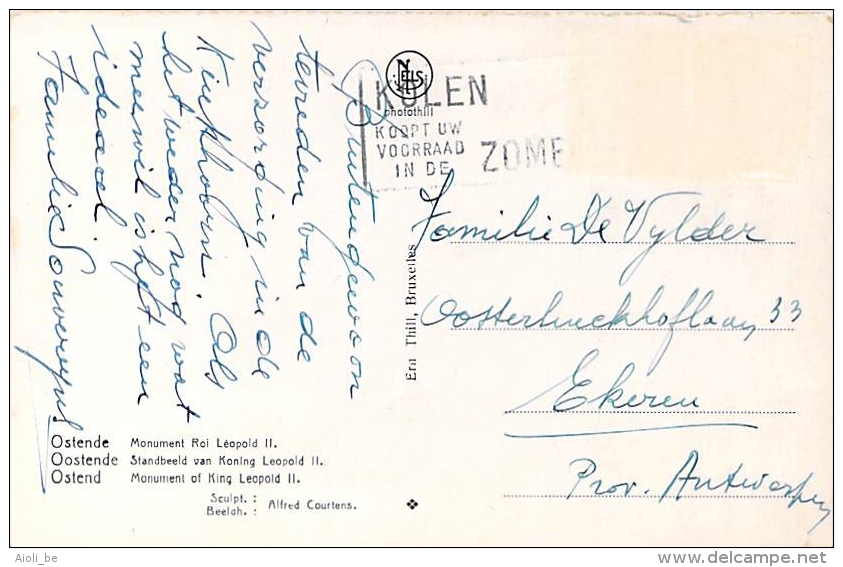 Buitengewoon
tevreden van de
verzorging in de
Kinkhoorn. Als
het weder nog wat
meewil is het een
ideaal.
Familie Souvereyns
NELS
photothill
KOLEN
KOOPT UW
VOORRAAD
IN DE
ZOME
Ern Thill, Bruxelles
Familie De Vylder
Oosterlinckhoflaan 33
Ekeren
Prov. Antwerpen
Ostende Monument Roi Léopold II.
Oostende Standbeeld van Koning Leopold II.
Ostend Monument of King Leopold II.
Sculpt. :
Beelah. :
Alfred Courtens.
Aioli_be
www.delcampe.net